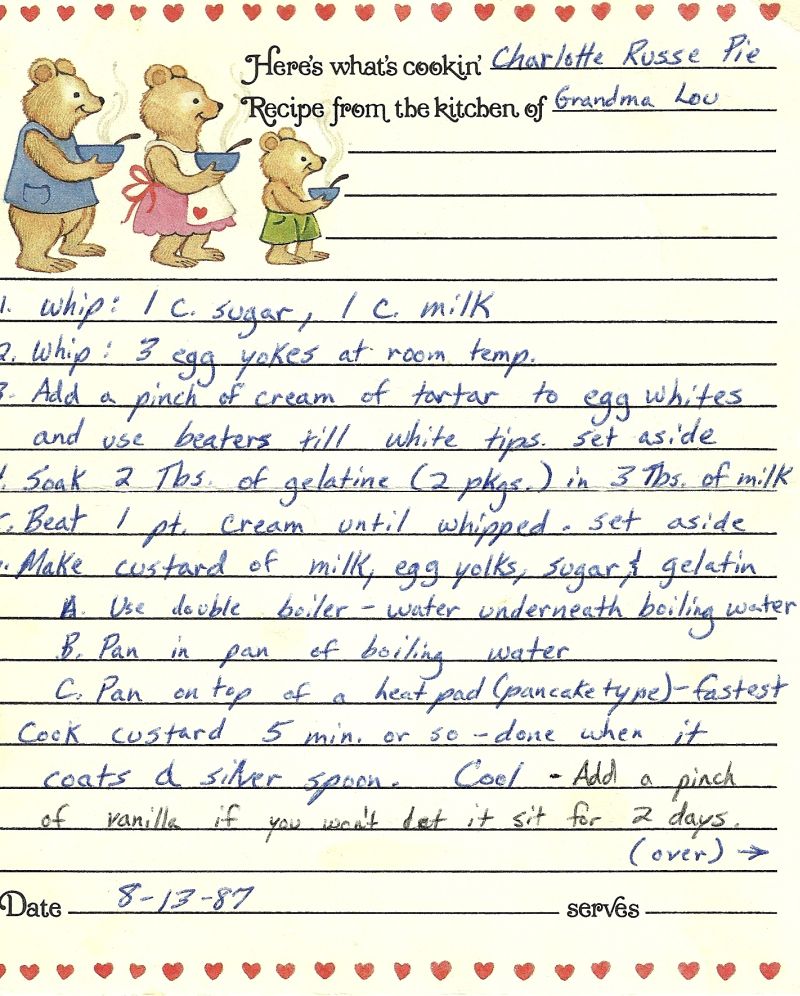 Here's what's cookin' Charlotte Russe Pie
Recipe from the kitchen of Grandma Lou
1. Whip: 1 c. sugar, 1 c. milk
2. Whip: 3 egg yokes at room temp.
3. Add a pinch of cream of tartar to egg whites
and use beaters till white tips. set aside
4. Soak 2 Tbs. of gelatine (2 pkgs.) in 3 Tbs. of milk
5. Beat 1 pt. cream until whipped. set aside
6. Make custard of milk, egg yolks, sugar & gelatin
A. Use double boiler - water underneath boiling water
B. Pan in pan of boiling water
C. Pan on top of a heat pad (pancake type) - fastest
Cook custard 5 min. or so - done when it
coats a silver spoon. Cool - Add a pinch
of vanilla if you won't let it sit for 2 days.
(over) →
Date 8-13-87 serves